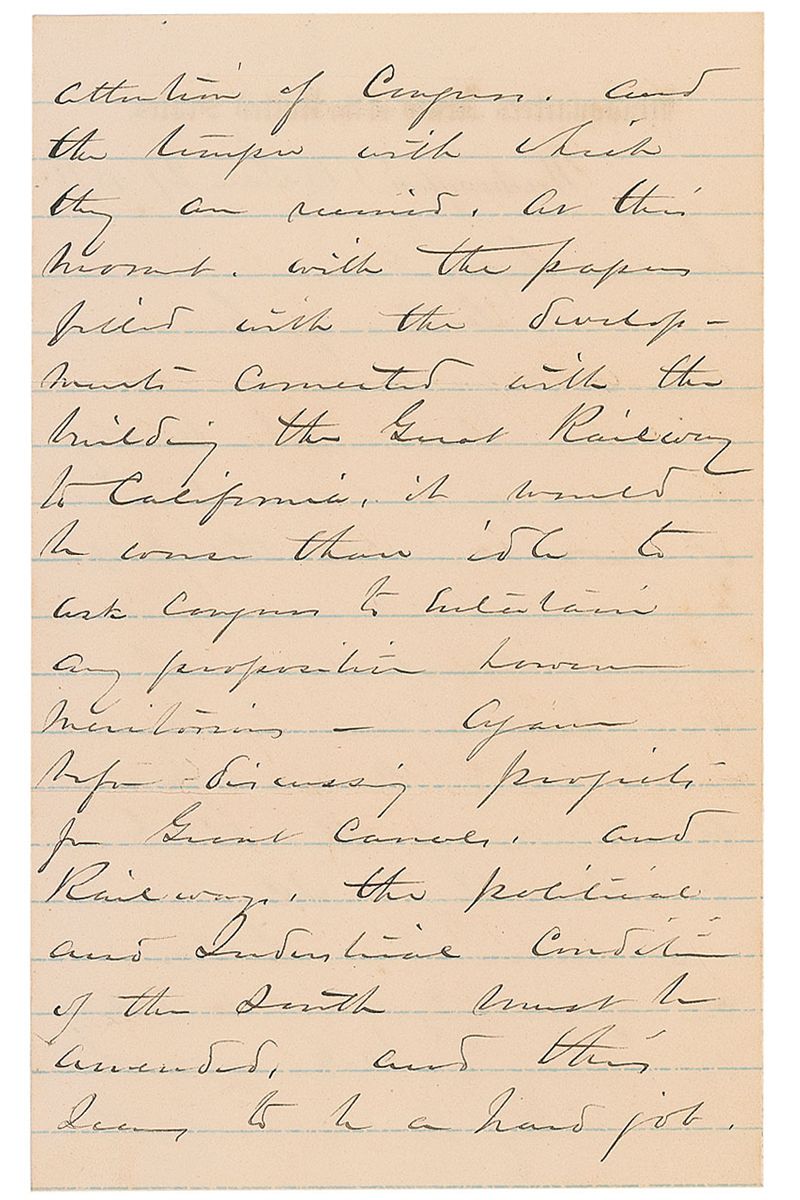 attention of Congress. and
the temper with which
they are received. At this
moment. with the papers
filled with the develop-
ments connected with the
building the Great Railway
to California, it would
be worse than idle to
ask Congress to entertain
any proposition however
meritorious — Again
before discussing projects
for Great Canals, and
Railways, the political
and Industrial Condition
of the South must be
amended, and this
seems to be a hard job.